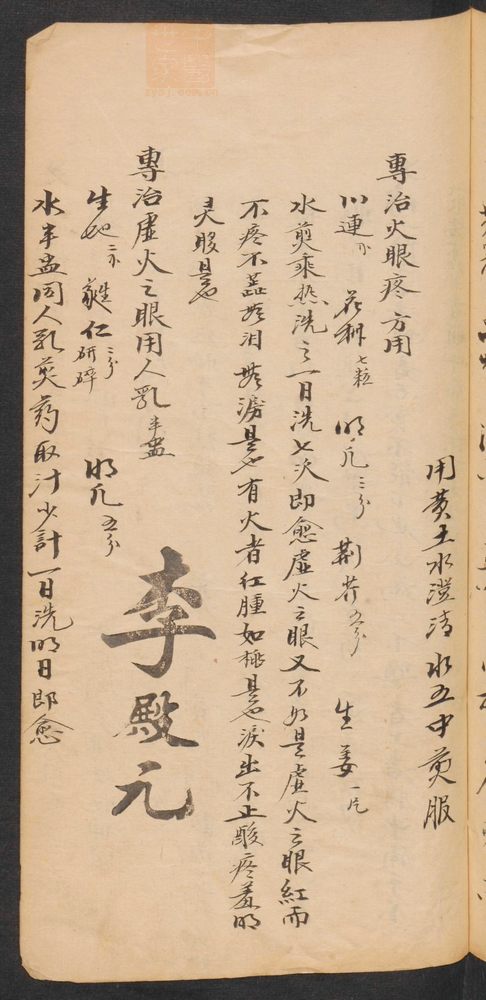 用黄土水澄清水五中煎服
專治火眼疼方用
川連 花椒七粒 明凡三分 荆芥五分 生姜一片
水煎乘热洗之一日洗七次即愈虚火之眼又不如是虚火之眼紅而
不疼不 無泪 是也有火者红腫如桃是也淚出不止酸疼羞明
灵服是也
專治虛火之眼用人乳半盅
生地二分 蕤仁三分研碎 明凡五分
水半盅同人乳煎药取汁少計一日洗明日即愈
李殿元
zysj.com.cn